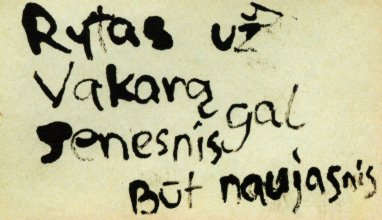 Rytas už
Vakarą
senesnis gal
Būt naujasnis